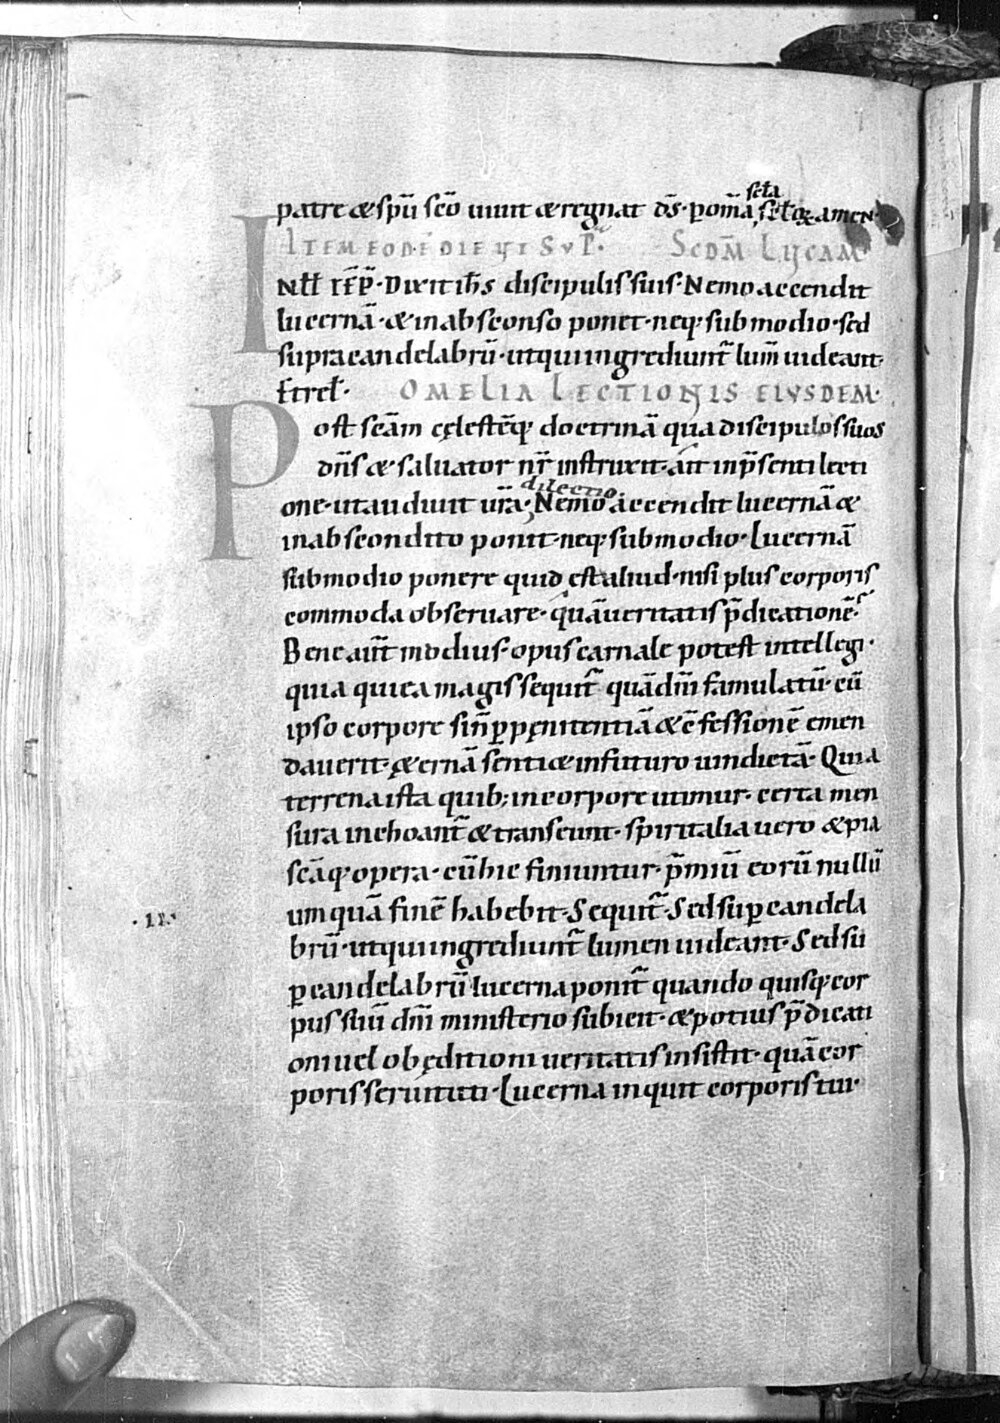 scła
patre & spū scō uiuit & regnat d̄s · p om̄a scłoꝝ amen ·
ITEM EODĒ DIE UT SUP̄ · SCDM̄ LUCAM
INłł tēp̄ · Dixit ih̄s discipulis suis · Nemo accendit
lucernā · & in absconso ponet · neq; sub modio · sed
supra candelabrū · ut qui ingrediunt̄ lum̄ uideant ·
Et rel̄ · OMELIA LECTIONIS EIUSDEM ·
Post scām cęlestēq; doctrinā qua discipulos suos
dn̄s & saluator nr̄ instruxit · ait in p̄senti lecti
dilectio
one · ut audiuit ur̄a · Nemo accendit lucernā &
in abscondito ponit · neq; sub modio · Lucernā
sub modio ponere quid est aliud · nisi plus corporis
commoda obseruare · quā ueritatis p̄dicationē ·
Bene aūt modius · opus carnale potest intellegi ·
quia qui ea magis sequit̄ quā dn̄i famulatū · cū
ipso corpore si n̄ p pęnitentiā & c̄fessionē emen
dauerit · ę̄ternā sentiet in futuro uindictā · Quia
terrena ista quib; in corpore utimur · certa men
sura inchoant̄ & transeunt · spiritalia uero & pia
scāq; opera · cū hic finiuntur · p̄miū eorū nullū
· II · umquā finē habebit · Sequit̄ · Sed sup candela
brū · ut qui ingrediunt̄ lumen uideant · Sed su
p candelabrū lucerna ponit̄ quando quisq; cor
pus suū dn̄i ministerio subicit · & potius p̄dicati
oni uel obęditioni ueritatis insistit · quā cor
poris seruituti · Lucerna inquit corporis tui ·